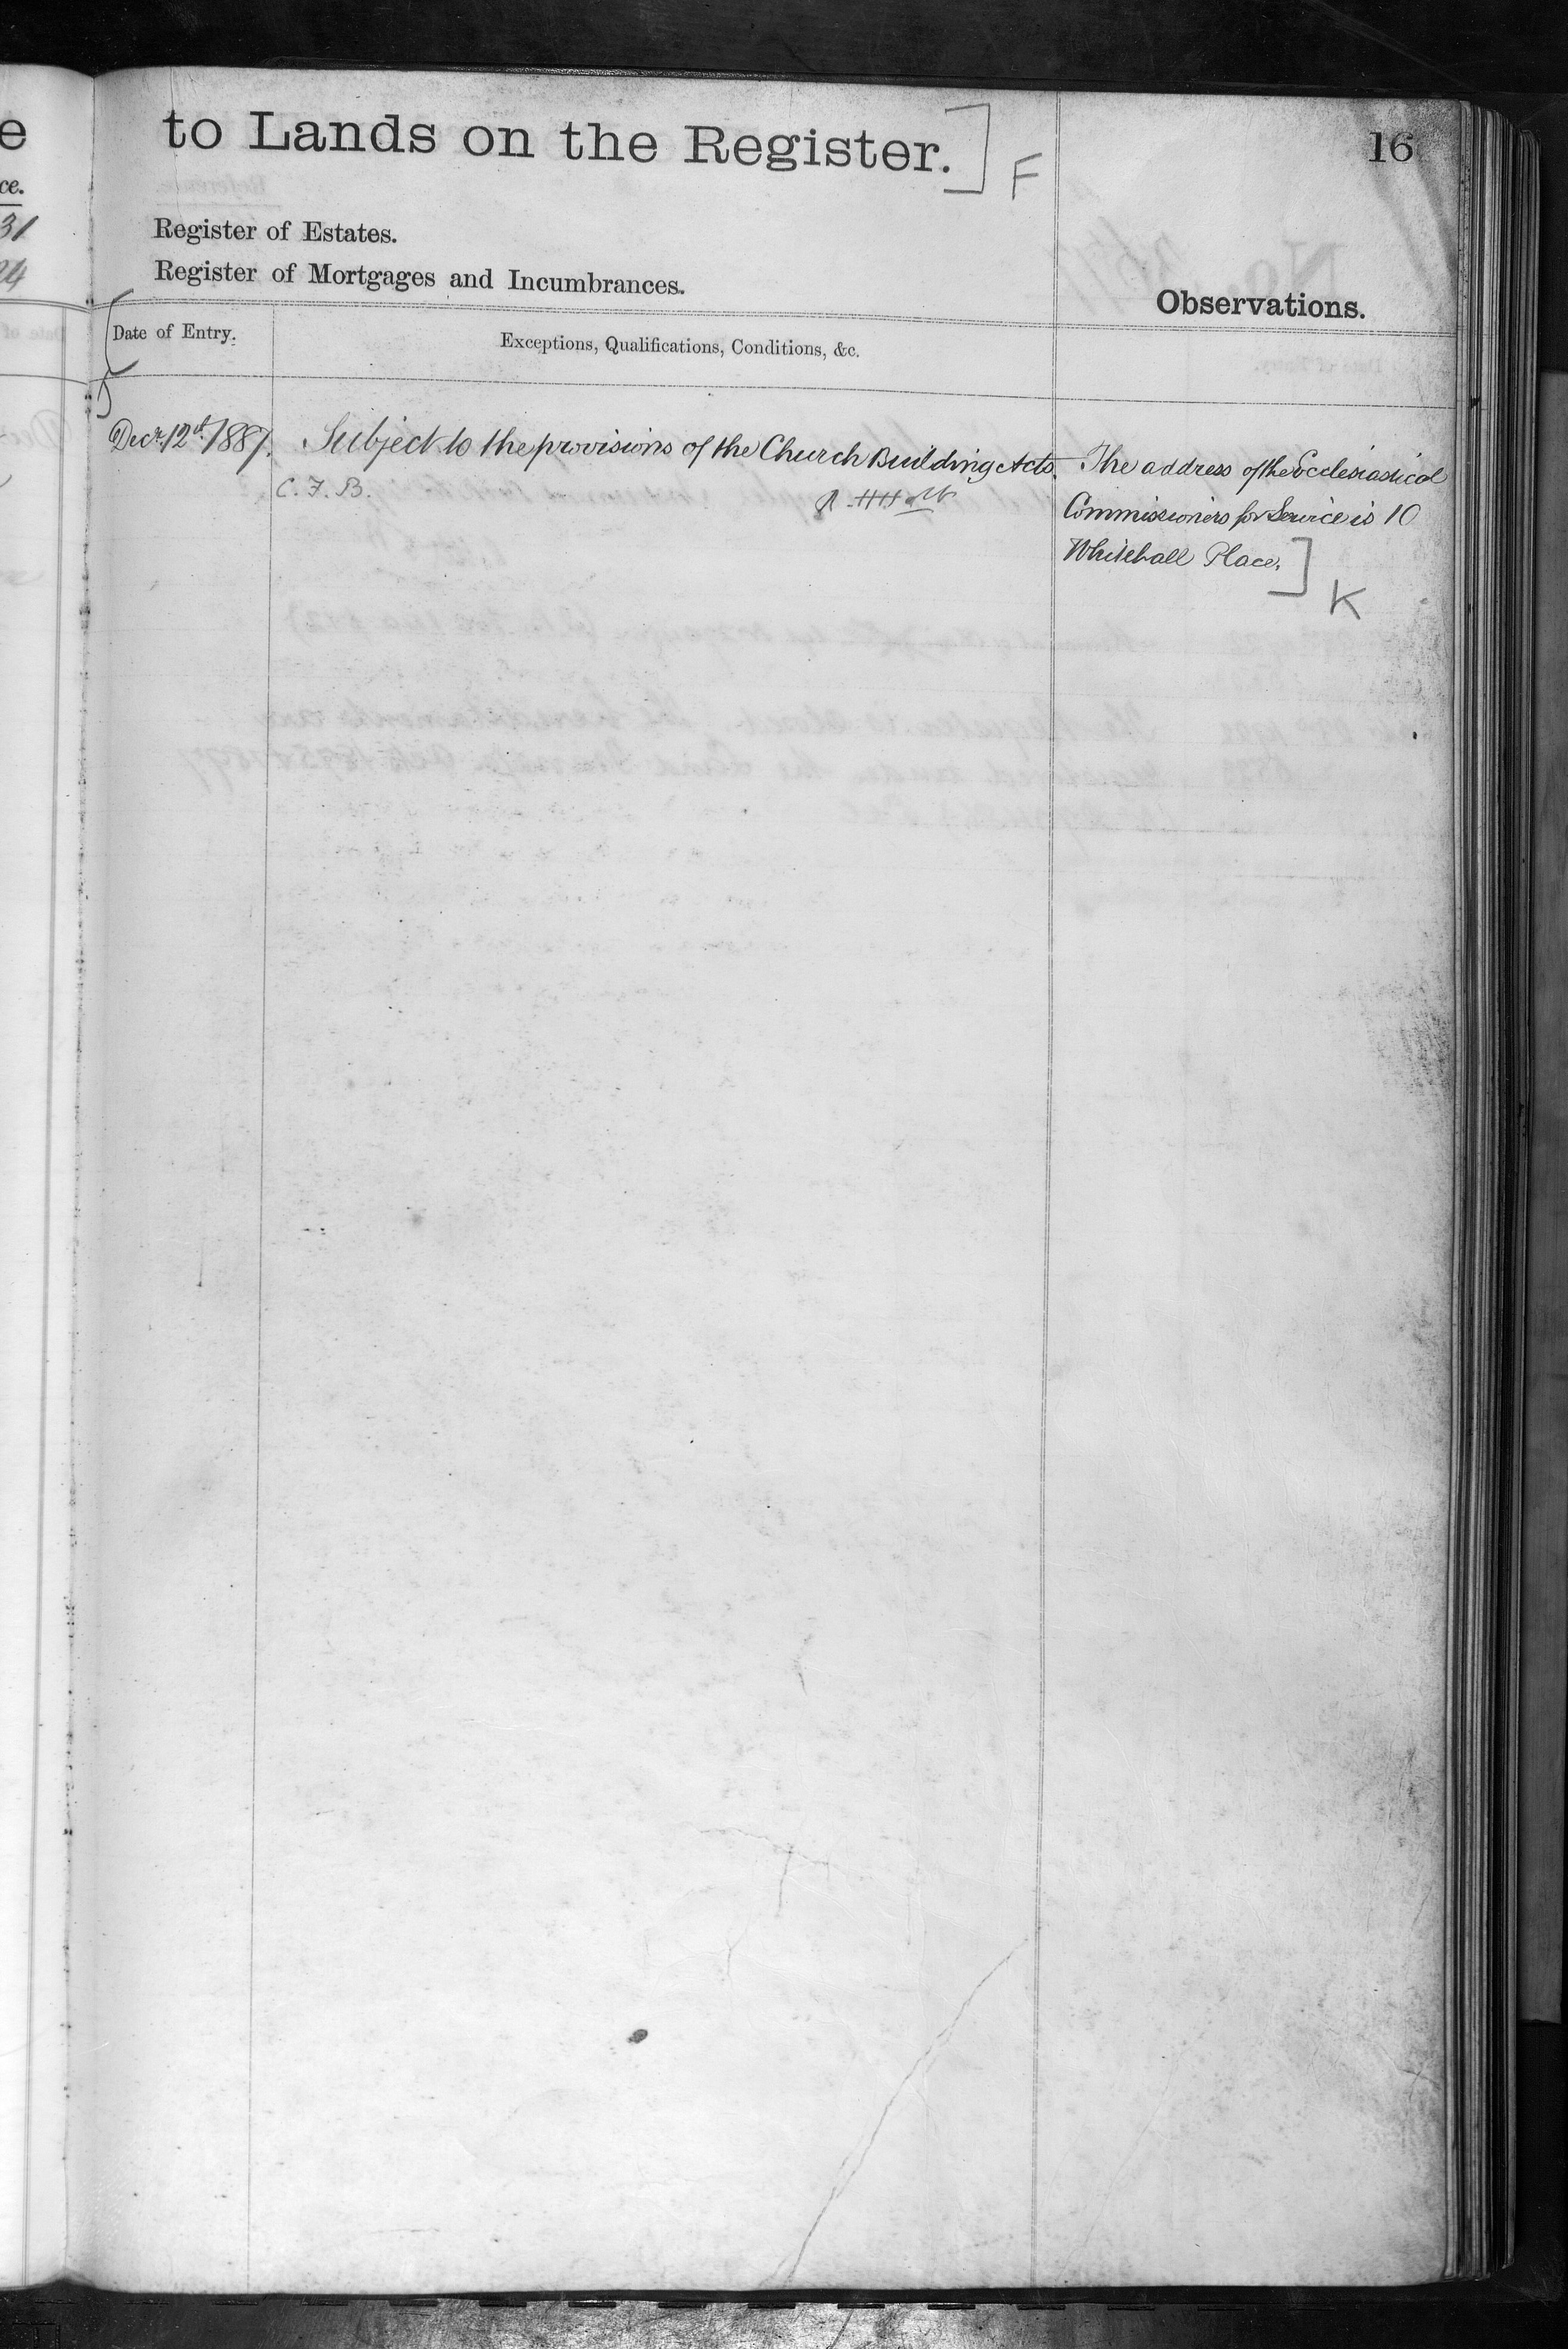 e
ce.
31
24
to Lands on the Register.] F
16
Register of Estates.
Register of Mortgages and Incumbrances.
Observations.
Date of Entry.
Exceptions, Qualifications, Conditions, &c.
Decr. 12th 1887. Subject to the provisions of the Church Building Acts.
C. F. B.
The address of the Ecclesiastical
Commissioners for Service is 10
Whitehall Place.]
K